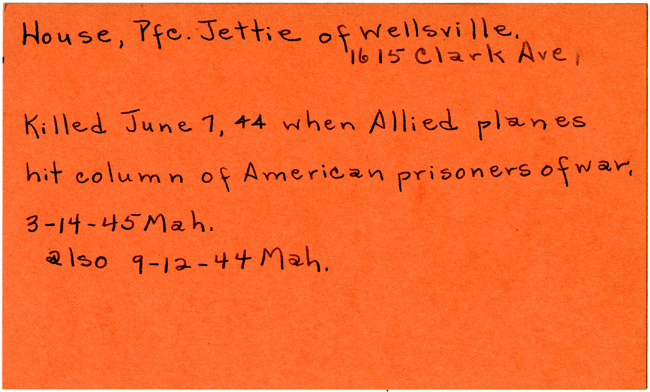 House, Pfc. Jettie of Wellsville.
1615 Clark Ave,
Killed June 7, 44 when Allied planes
hit column of American prisoners of war.
3-14-45 Mah.
also 9-12-44 Mah.